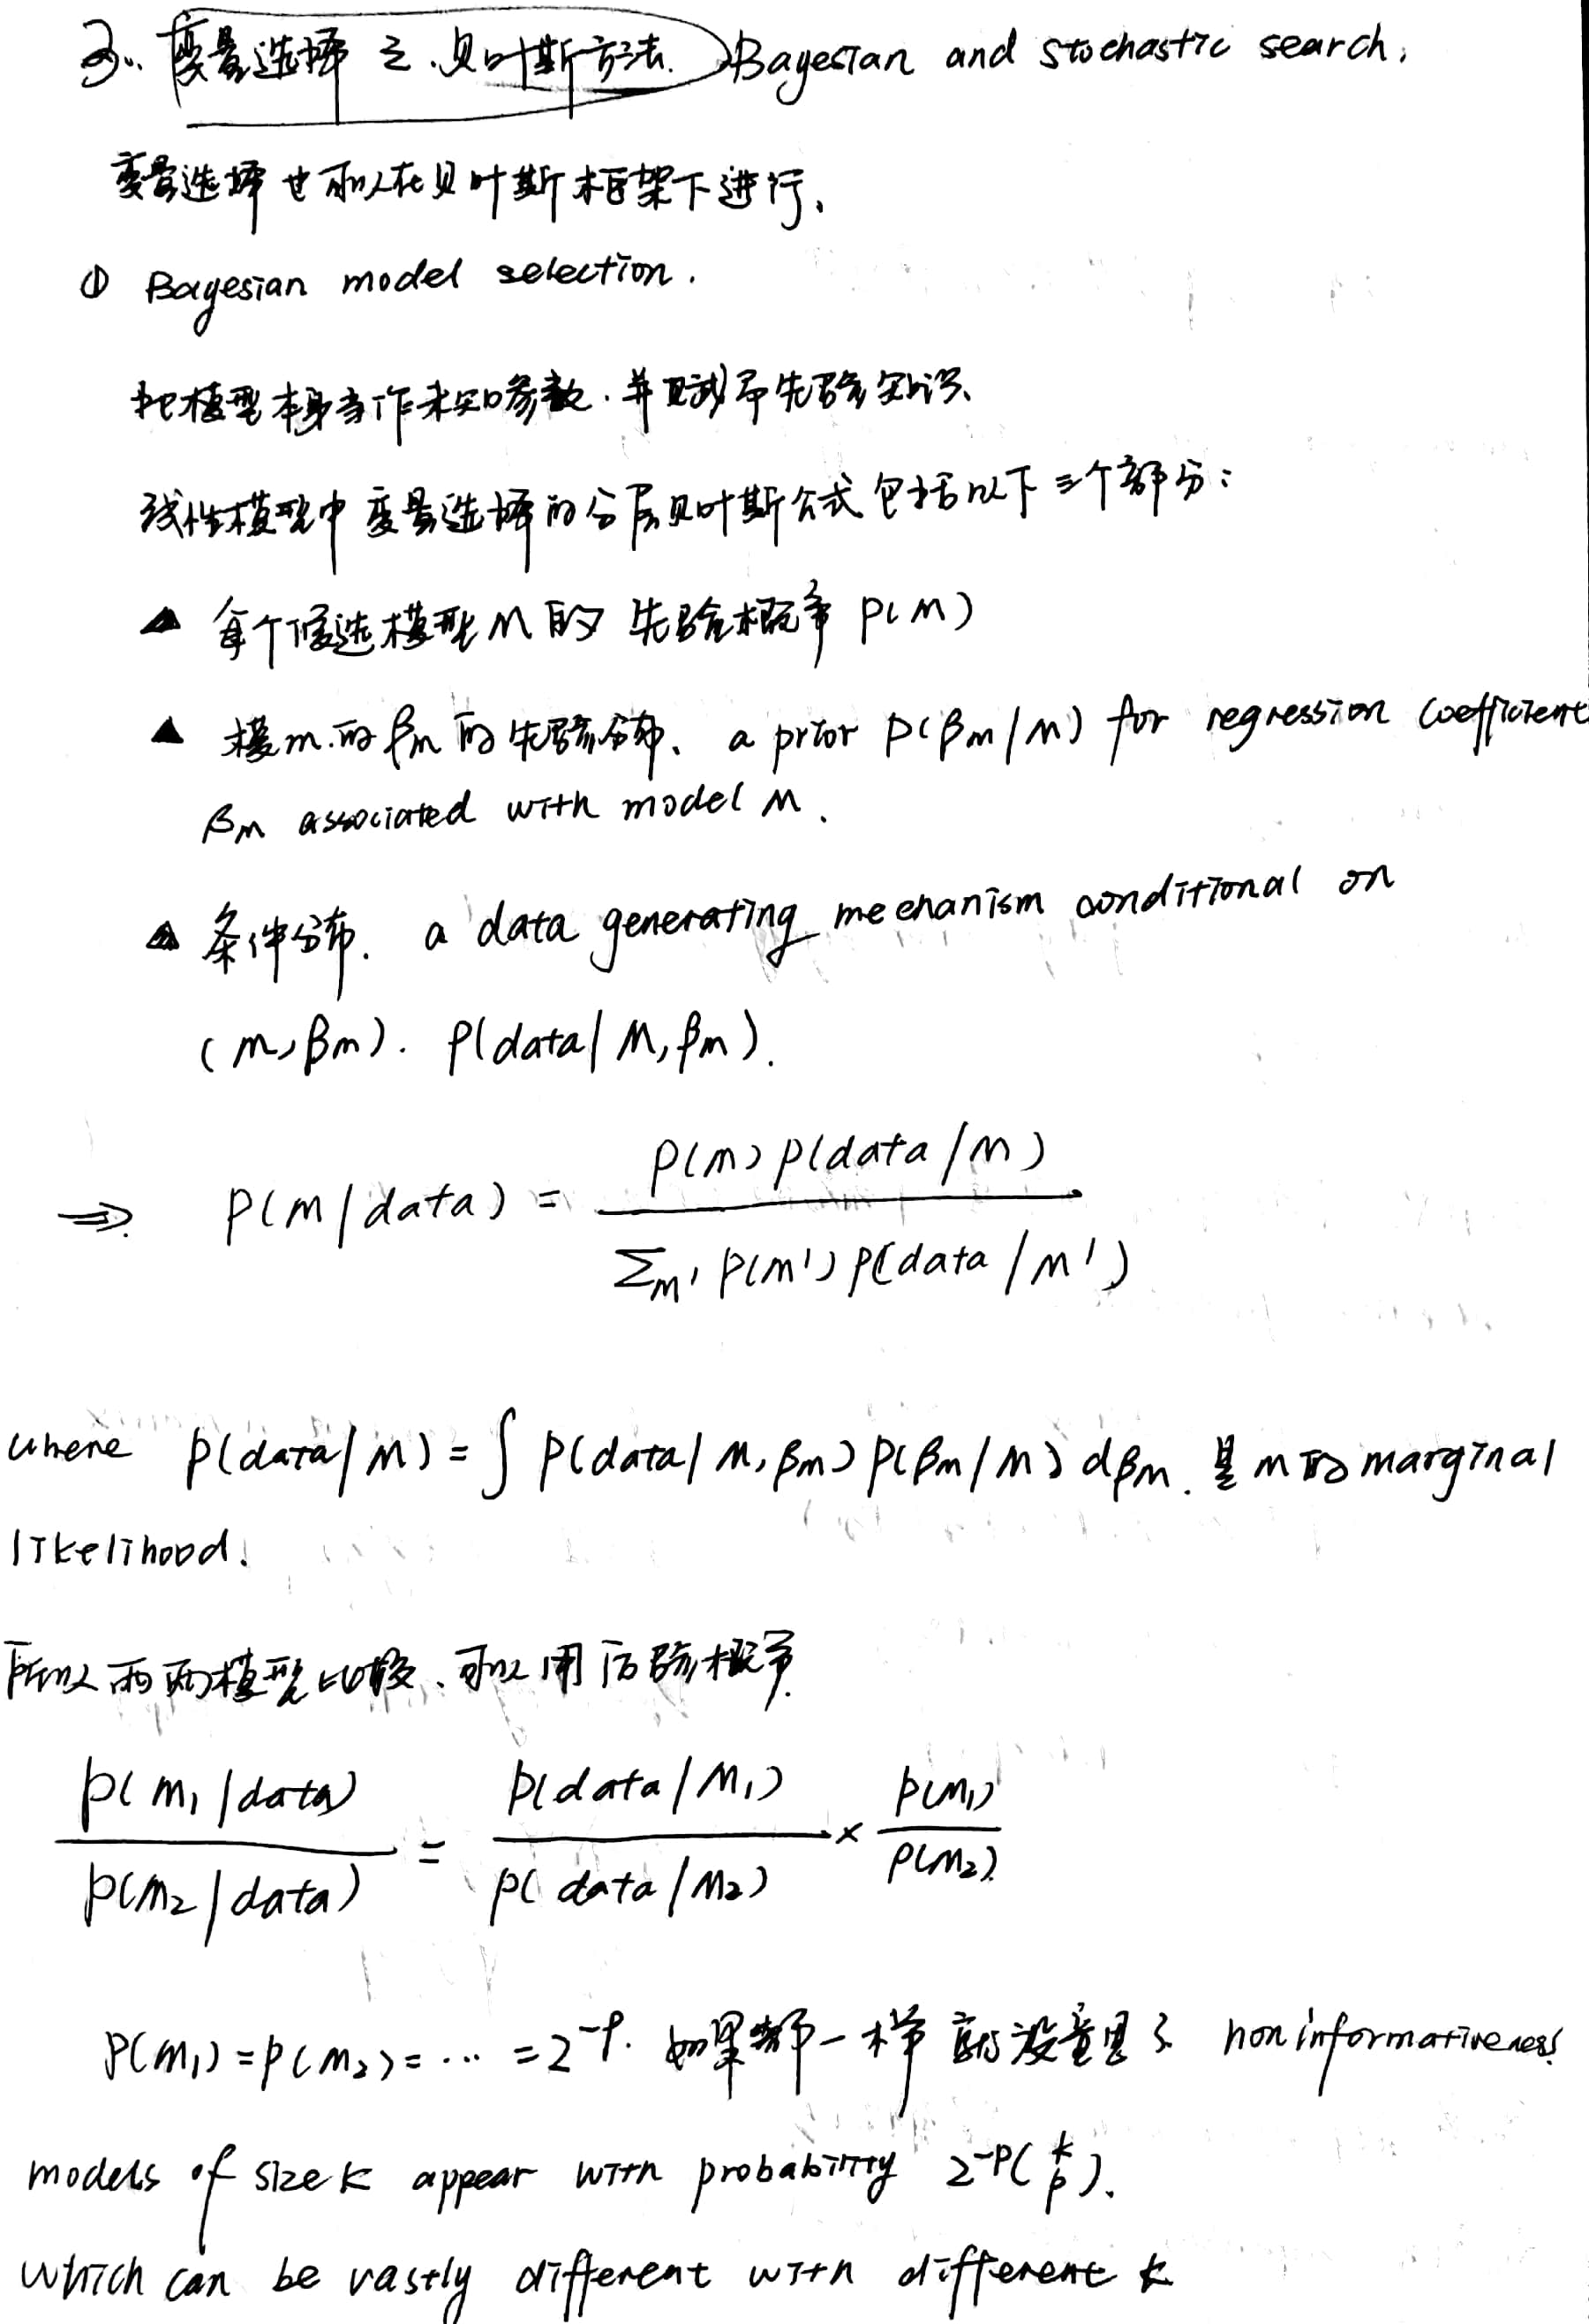 3. 变量选择之.贝叶斯方法. Bayesian and stochastic search.
变量选择也可以在贝叶斯框架下进行.
① Bayesian model selection.
把模型本身当作未知参数.并赋予先验知识.
线性模型中变量选择的分层贝叶斯公式包括以下三个部分:
▲ 每个候选模型M的先验概率 P(M)
▲ 模m.的βm的先验分布. a prior P(βm/M) for regression coefficient
βm associated with model M.
▲ 条件分布. a data generating mechanism conditional on
(m,βm). P(data/M,βm).
⇒ P(M/data) = P(m)P(data/M) / Σm' P(m')P(data/M')
where P(data/M) = ∫ P(data/M,βm)P(βm/M) dβm. 是m的marginal
likelihood.
所以两两模型比较.可以用后验概率.
P(m₁/data) / P(m₂/data) = P(data/M₁) / P(data/M₂) × P(M₁) / P(M₂)
P(m₁)=P(m₂)=⋯=2^-P. 如果都一样 noninformativeness
models of size k appear with probability 2^-P(k p).
which can be vastly different with different k